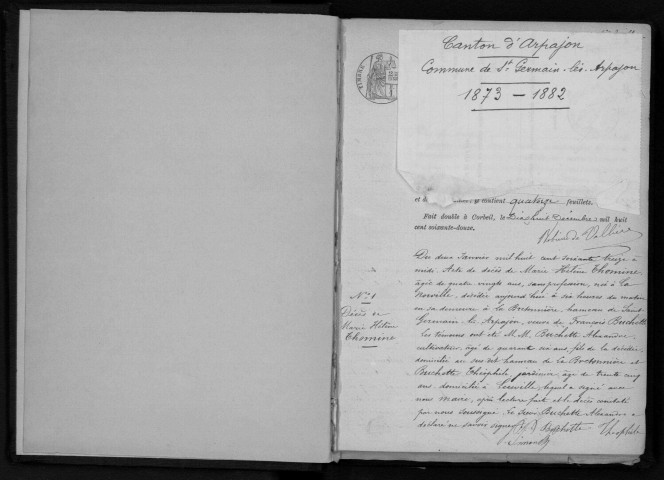 Canton d'Arpajon
Commune de St Germain-lès-Arpajon
1873 - 1882
TIMBRE
contient quatorze feuillets.
Fait double à Corbeil, le Dix huit Décembre mil huit
cent soixante-douze.
Du deux Janvier mil huit cent soixante treize à
midi. Acte de décès de Marie Hélène Thomine
âgée de quatre vingts ans, sans profession, née à La
Norville, décédée aujourd'hui à six heures du matin
en sa demeure à la Bretonnière, hameau de Saint
Germain-lès-Arpajon, veuve de François Berchotte
Les témoins ont été M.M. Berchotte Alexandre
cultivateur, âgé de quarante six ans, fils de la décédée
domicilié au susdit hameau de la Bretonnière et
Berchotte Théophile, jardinier, âgé de trente cinq
ans, domicilié à Leuville lequel a signé avec
nous Maire, après lecture faite et le décès constaté
par nous soussigné. Le sieur Berchotte Alexandre a
déclaré ne savoir signer
Berchotte Théophile
No 1
Décès de
Marie Hélène
Thomine